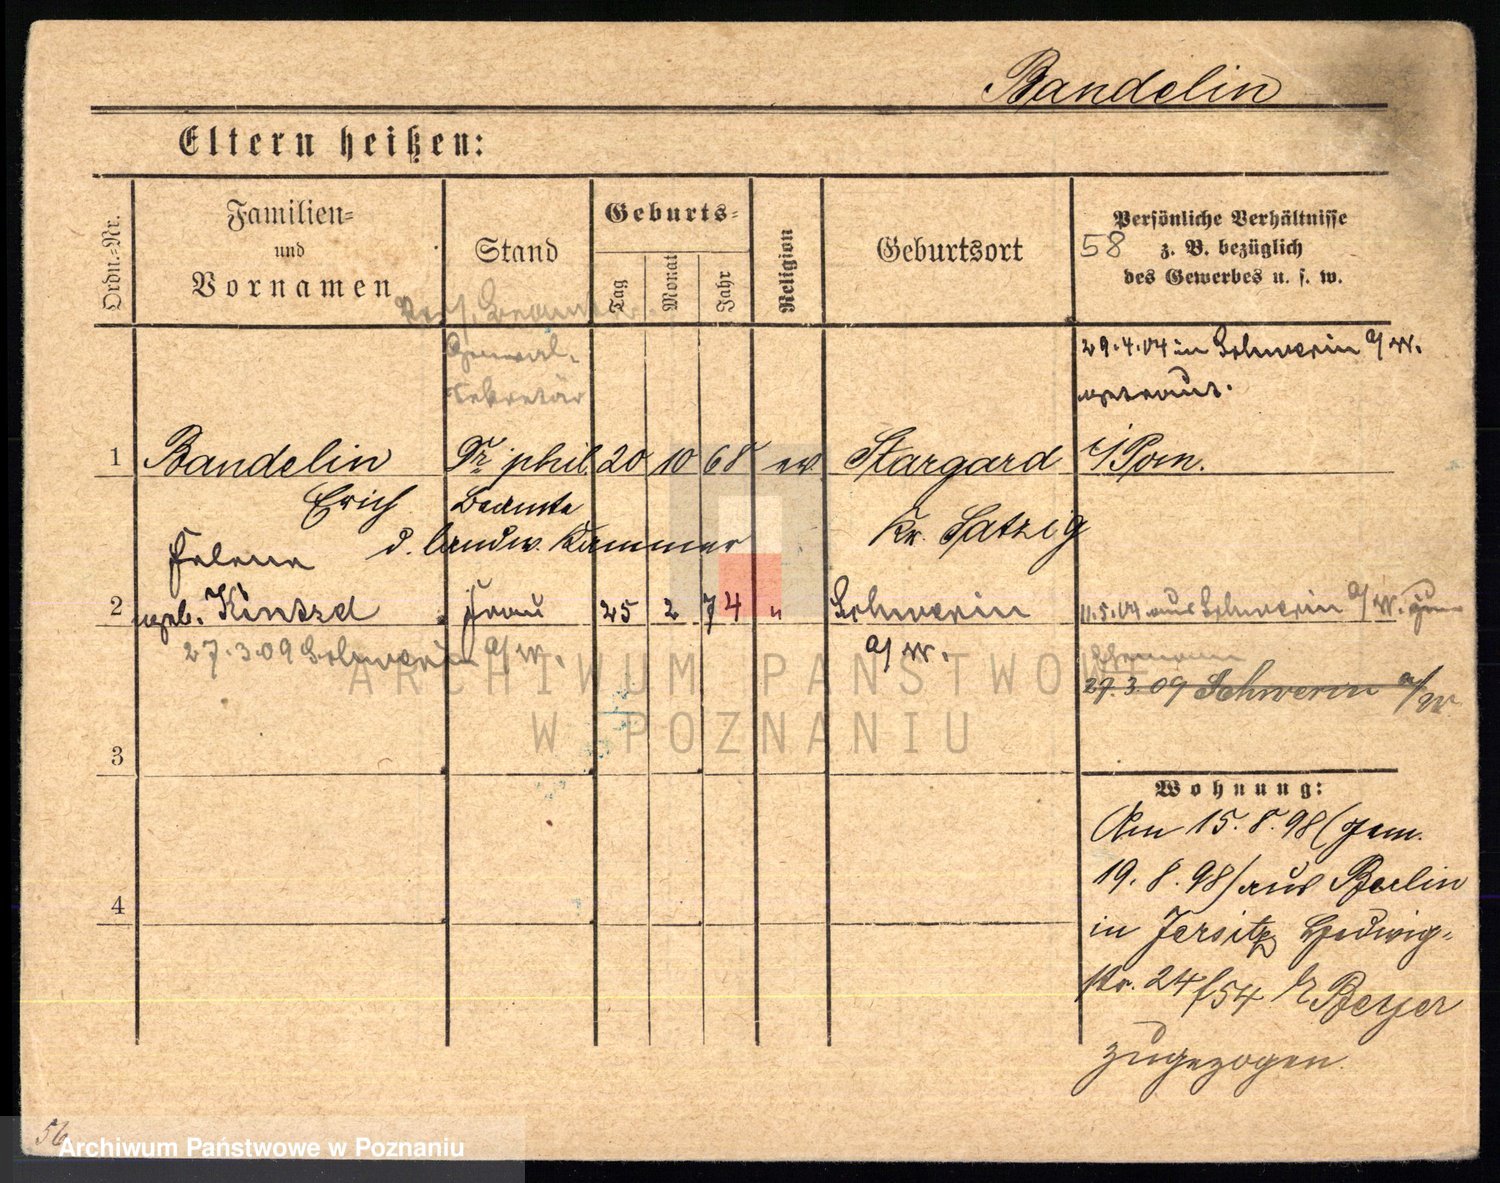 Bandelin
Eltern heißen:
Ordn.-Nr.
Familien-
und
Vornamen
Stand
Geburts-
Tag
Monat
Jahr
Religion
Geburtsort
Persönliche Verhältnisse
58 z. B. bezüglich
des Gewerbes u. s. w.
General-
sekretär
29.4.04 in Schwerin a/W.
getraut.
1 Bandelin Dr phil. 20 10 68 ev. Stargard i/Pom.
Erich Beamte
d. landw. Kammer Kr. Satzig
Helene
2 geb. Frau 25 2 74 " Schwerin 11.5.04 aus Schwerin a/W. zum
27.3.09 Schwerin a/W. a/W.
Ehemann
27.3.09 Schwerin a/W
3
4
Wohnung:
Am 15.8.98 (gem.
19.8.98) aus Berlin
in Jersitz Hedwig-
str. 24/54 Beyer
zugezogen.
ARCHIWUM PAŃSTWOWE
W POZNANIU
56
Archiwum Państwowe w Poznaniu